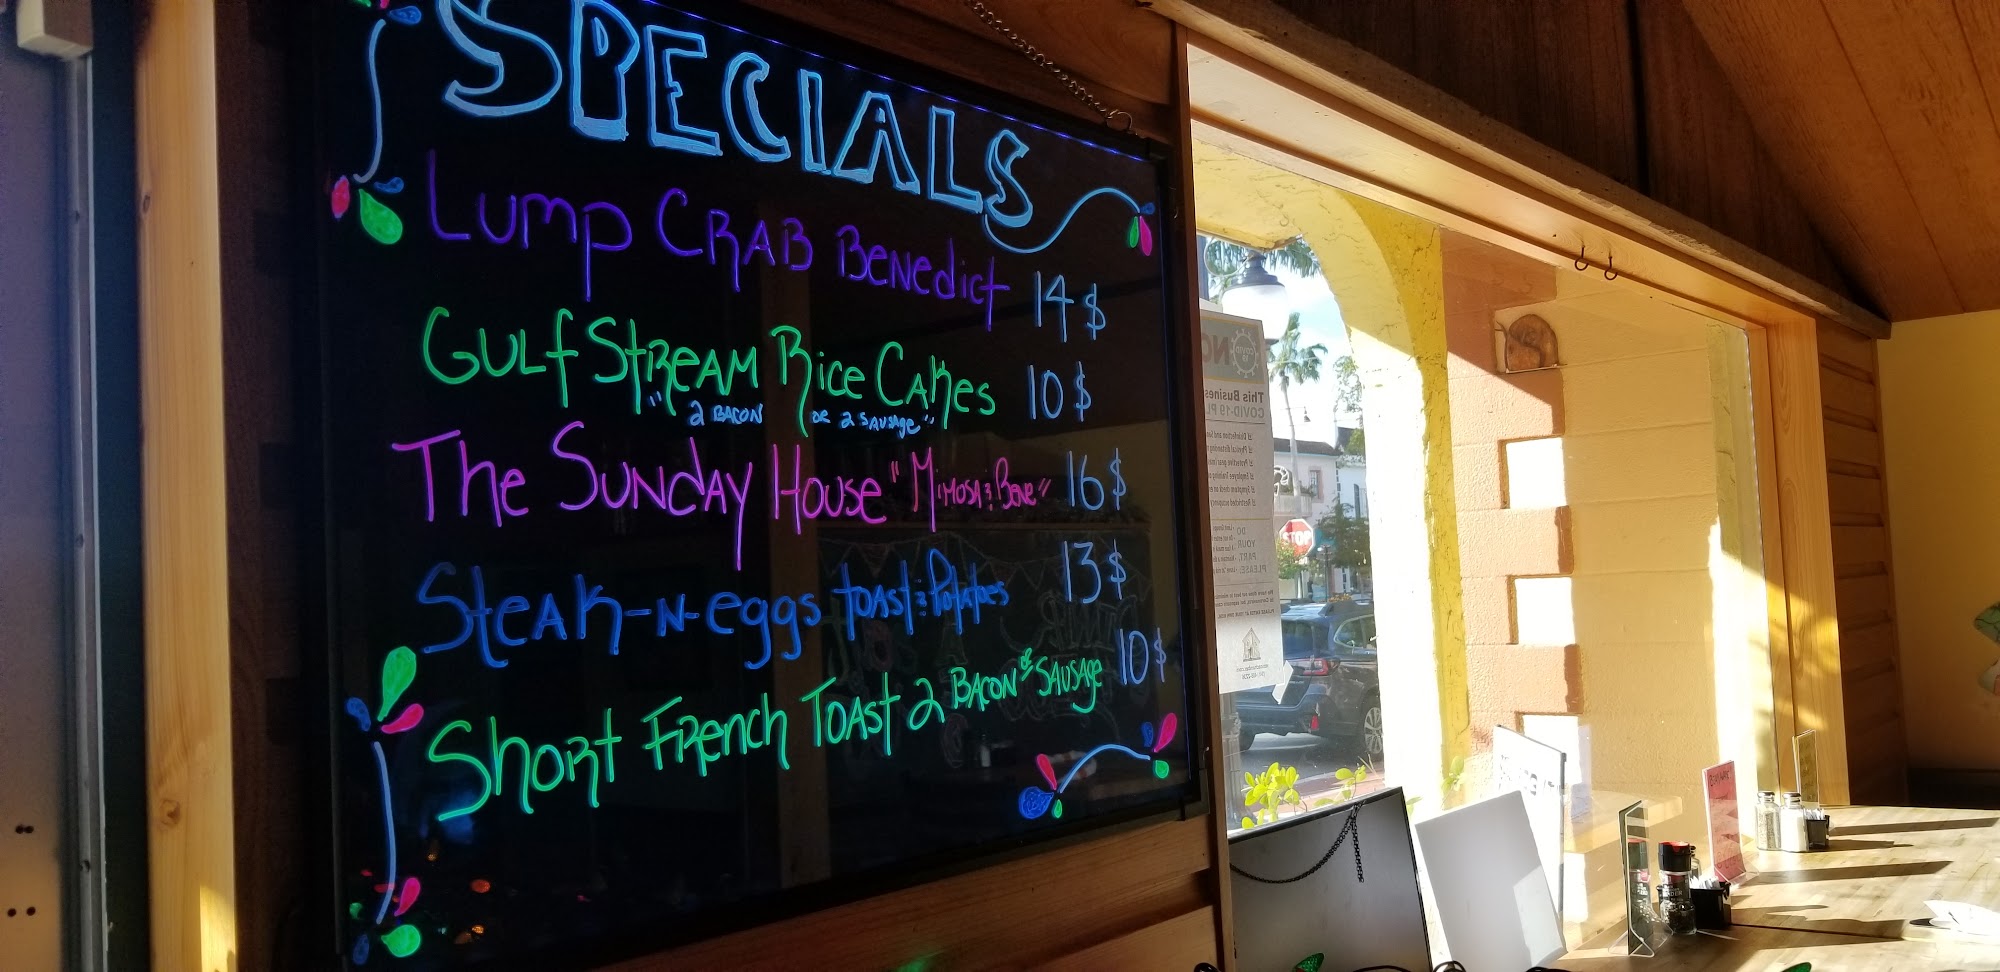 SPECIALS
Lump CRAB Benedict 14$
Gulf Stream Rice Cakes 10$
"2 BACON or 2 SAUSAGE"
The Sunday House "Mimosa & Bene" 16$
Steak-N-eggs toast & Potatoes 13$
Short French Toast 2 Bacon or Sausage 10$
This Business
COVID-19
DO
YOUR
PART.
PLEASE:
STOP